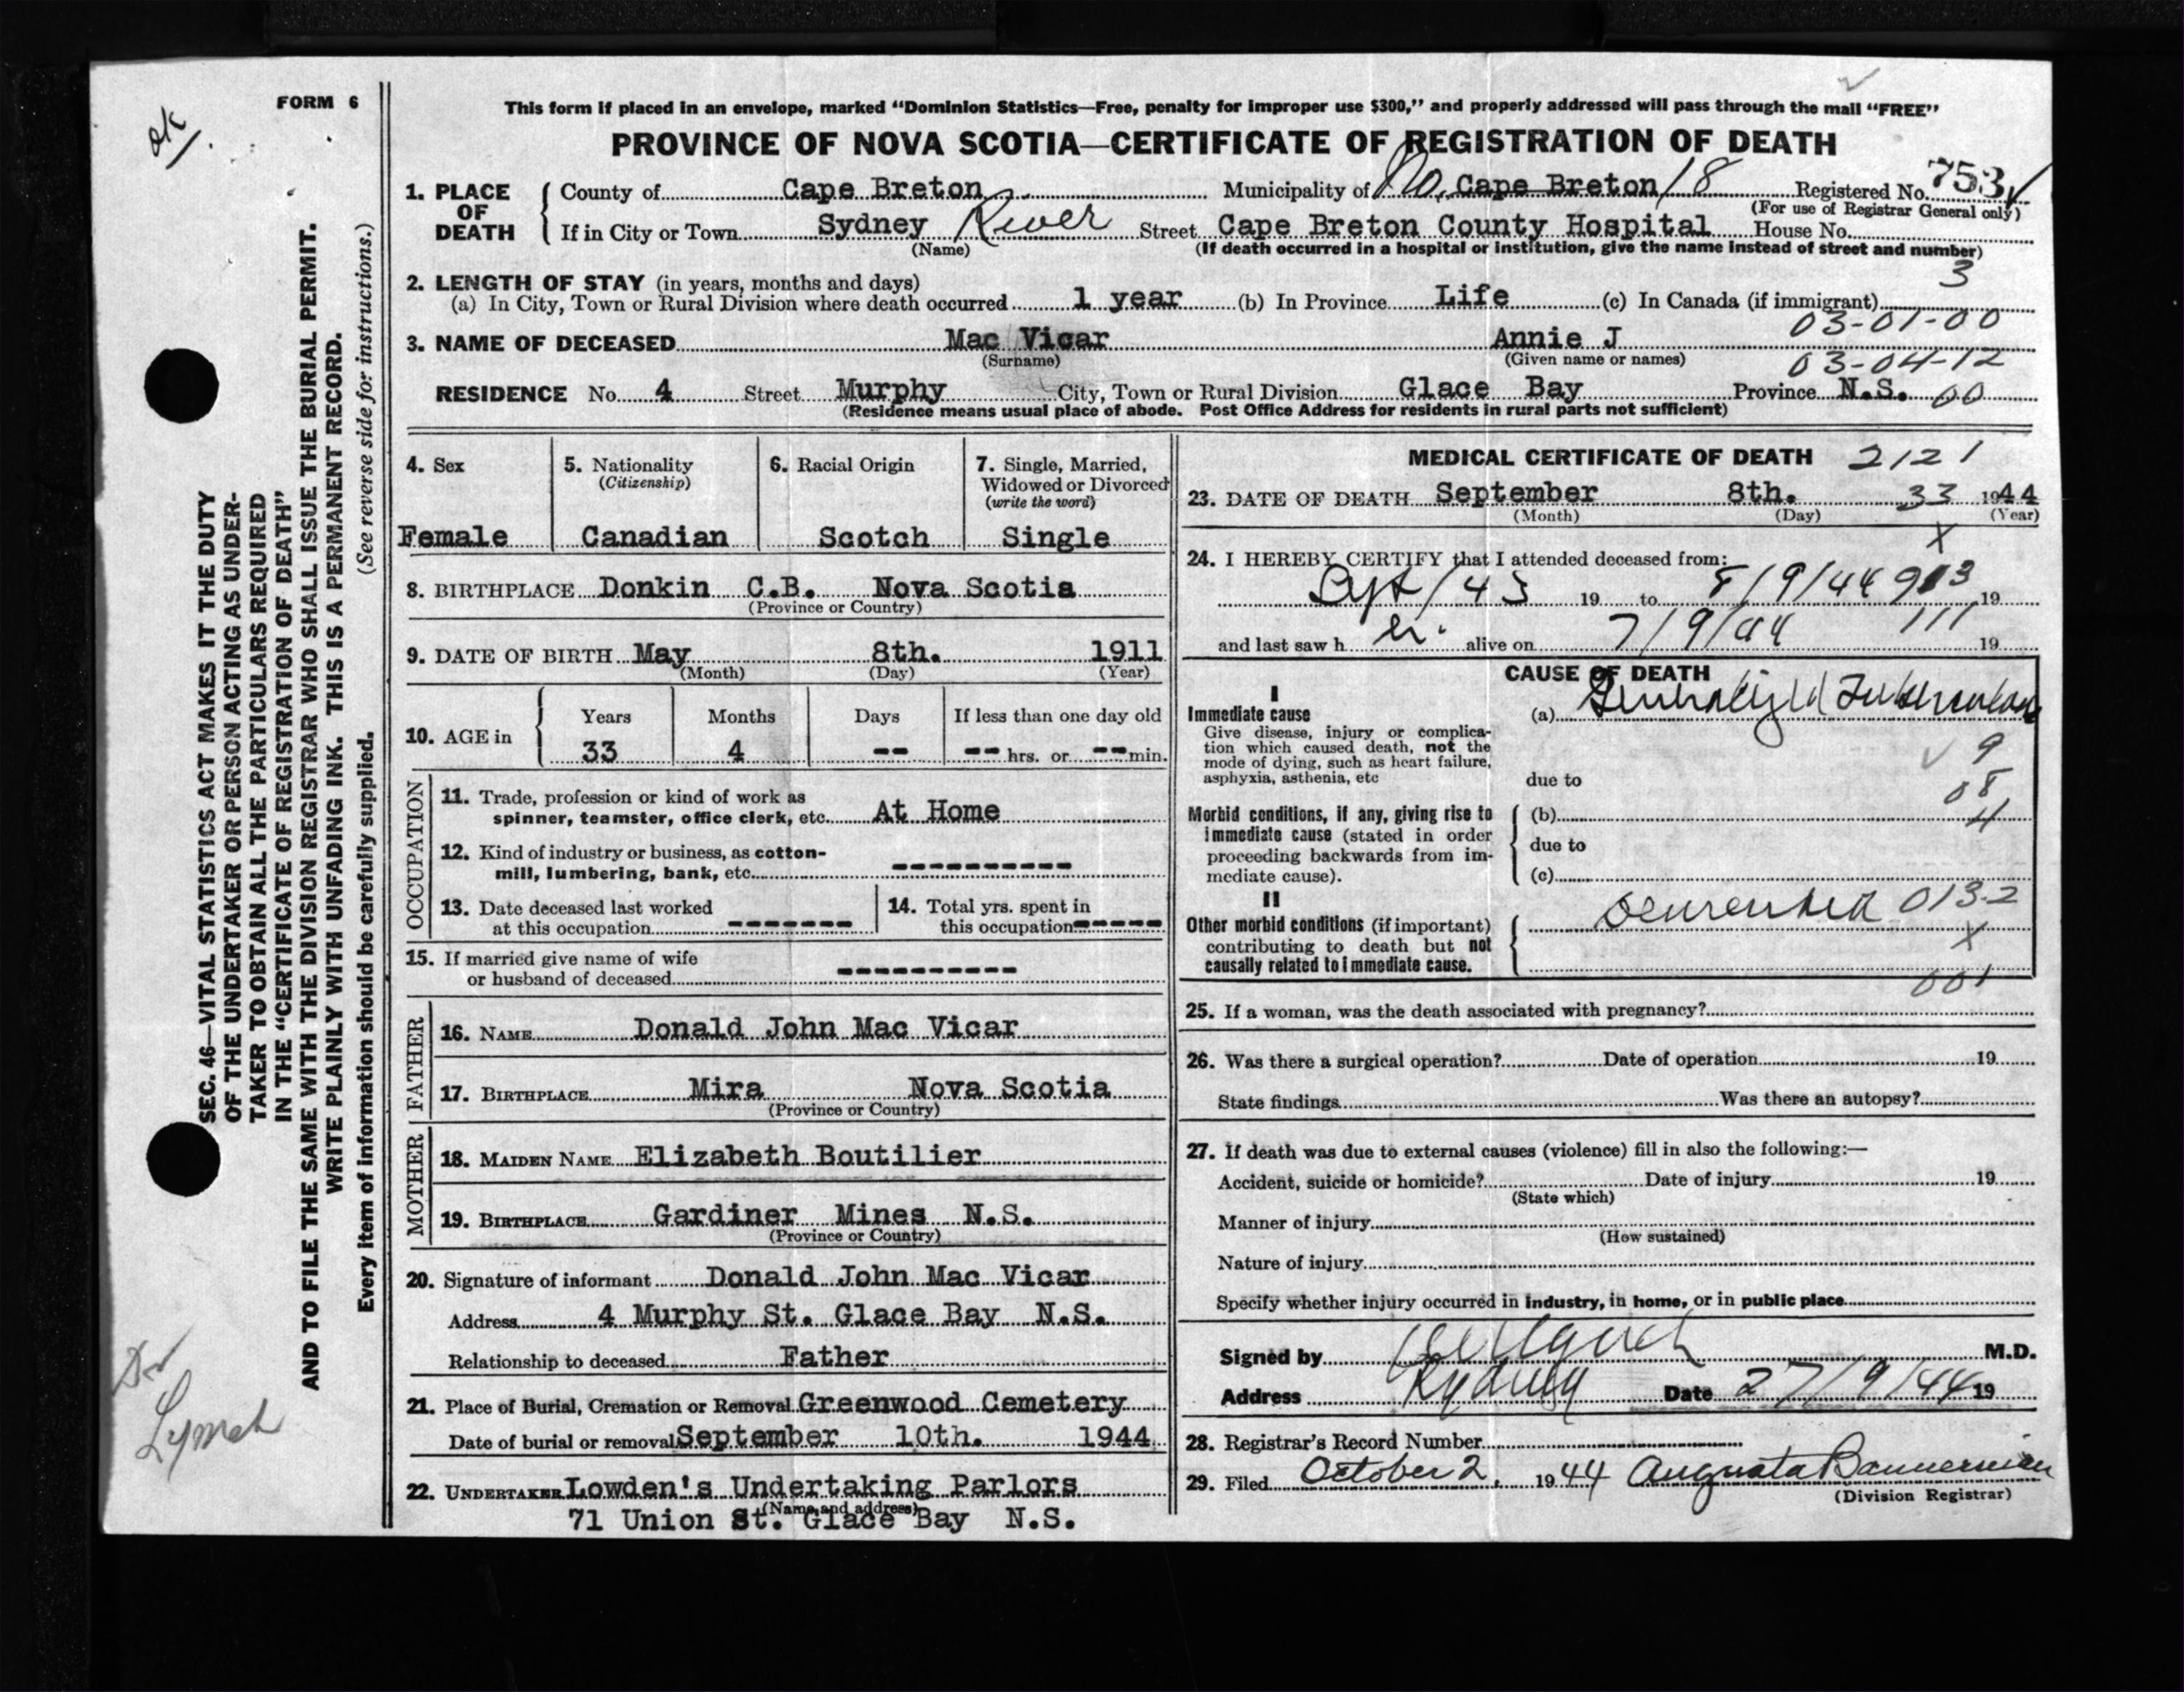 FORM 6
ok
This form if placed in an envelope, marked "Dominion Statistics—Free, penalty for improper use $300," and properly addressed will pass through the mail "FREE"
PROVINCE OF NOVA SCOTIA—CERTIFICATE OF REGISTRATION OF DEATH
1. PLACE OF DEATH
County of Cape Breton Municipality of No. Cape Breton /8 Registered No. 753
(For use of Registrar General only)
If in City or Town Sydney River Street Cape Breton County Hospital House No.
(Name) (If death occurred in a hospital or institution, give the name instead of street and number)
2. LENGTH OF STAY (in years, months and days) 3
(a) In City, Town or Rural Division where death occurred 1 year (b) In Province Life (c) In Canada (if immigrant)
03-01-00
3. NAME OF DECEASED Mac Vicar Annie J
(Surname) (Given name or names) 03-04-12
RESIDENCE No. 4 Street Murphy City, Town or Rural Division Glace Bay Province N.S. 00
(Residence means usual place of abode. Post Office Address for residents in rural parts not sufficient)
4. Sex
Female
5. Nationality
(Citizenship)
Canadian
6. Racial Origin
Scotch
7. Single, Married,
Widowed or Divorced
(write the word)
Single
8. BIRTHPLACE Donkin C.B. Nova Scotia
(Province or Country)
9. DATE OF BIRTH May 8th. 1911
(Month) (Day) (Year)
10. AGE in Years Months Days If less than one day old
33 4 -- -- hrs. or -- min.
OCCUPATION
11. Trade, profession or kind of work as
spinner, teamster, office clerk, etc. At Home
12. Kind of industry or business, as cotton-
mill, lumbering, bank, etc. ----------
13. Date deceased last worked
at this occupation -------
14. Total yrs. spent in
this occupation -----
15. If married give name of wife
or husband of deceased ----------
FATHER
16. NAME Donald John Mac Vicar
17. BIRTHPLACE Mira Nova Scotia
(Province or Country)
MOTHER
18. MAIDEN NAME Elizabeth Boutilier
19. BIRTHPLACE Gardiner Mines N.S.
(Province or Country)
20. Signature of informant Donald John Mac Vicar
Address 4 Murphy St. Glace Bay N.S.
Relationship to deceased Father
21. Place of Burial, Cremation or Removal Greenwood Cemetery
Date of burial or removal September 10th. 1944
22. UNDERTAKER Lowden's Undertaking Parlors
(Name and address)
71 Union St. Glace Bay N.S.
MEDICAL CERTIFICATE OF DEATH 2121
23. DATE OF DEATH September 8th. 33 1944
(Month) (Day) (Year)
X
24. I HEREBY CERTIFY that I attended deceased from:
Sept/43 19 to 8/9/44 913 19
111
and last saw h er alive on 7/9/44 19
CAUSE OF DEATH
I
Immediate cause
Give disease, injury or complica-
tion which caused death, not the
mode of dying, such as heart failure,
asphyxia, asthenia, etc
(a) Generalized Tuberculosis
9
due to
08
Morbid conditions, if any, giving rise to
immediate cause (stated in order
proceeding backwards from im-
mediate cause).
(b) 4
due to
(c)
II
Other morbid conditions (if important)
contributing to death but not
causally related to immediate cause.
013-2
X
001
25. If a woman, was the death associated with pregnancy?
26. Was there a surgical operation? Date of operation 19
State findings Was there an autopsy?
27. If death was due to external causes (violence) fill in also the following:—
Accident, suicide or homicide? Date of injury 19
(State which)
Manner of injury
(How sustained)
Nature of injury
Specify whether injury occurred in industry, in home, or in public place
Signed by M.D.
Address Sydney Date 27/9/44 19
28. Registrar's Record Number
29. Filed October 2, 1944 Augusta Bannerman
(Division Registrar)
SEC. 46—VITAL STATISTICS ACT MAKES IT THE DUTY
OF THE UNDERTAKER OR PERSON ACTING AS UNDER-
TAKER TO OBTAIN ALL THE PARTICULARS REQUIRED
IN THE "CERTIFICATE OF REGISTRATION OF DEATH"
AND TO FILE THE SAME WITH THE DIVISION REGISTRAR WHO SHALL ISSUE THE BURIAL PERMIT.
WRITE PLAINLY WITH UNFADING INK. THIS IS A PERMANENT RECORD.
Every item of information should be carefully supplied. (See reverse side for instructions.)
Dr
Lynch